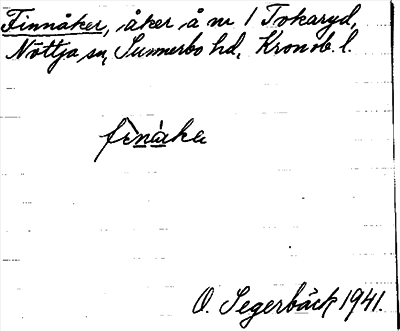 Finnåker, åker å nr 1 Tokaryd,
Nöttja sn, Sunnerbo hd, Kronob. l.
fìnàka
O. Segerbäck 1941.